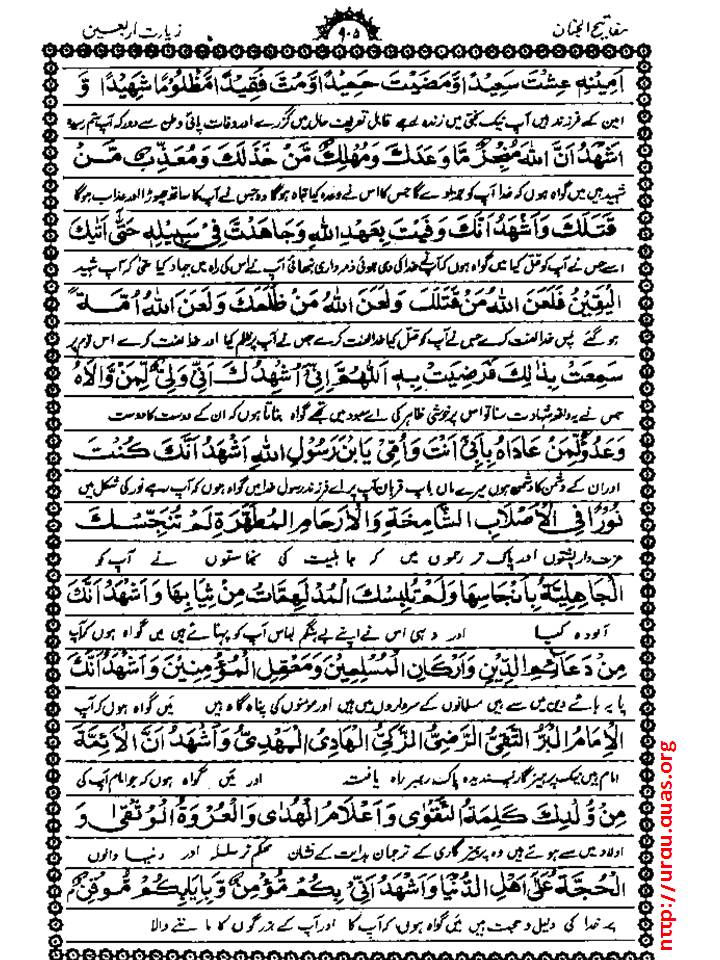 مفاتیح الجنان
۹۰۵
زیارت اربعین
اَمِیْنِهٖ عِشْتَ سَعِیْدًا وَّمَضَیْتَ حَمِیْدًا وَّمُتَّ فَقِیْدًا مَّظْلُوْمًا شَهِیْدًا وَّ
امین کے فرزند ہیں آپ نیک بختی میں زندہ رہے قابل تعریف حال میں گزرے اور وفات پائی وطن سے دور کہ آپ ستم رسیدہ
اَشْهَدُ اَنَّ اللهَ مُنْجِزٌ مَّا وَعَدَكَ وَمُهْلِكٌ مَّنْ خَذَلَكَ وَمُعَذِّبٌ مَّنْ
شہید ہیں میں گواہ ہوں کہ خدا آپ کو جزا دے گا جس کا اس نے وعدہ کیا تباہ ہوگا وہ جس نے آپ کا ساتھ چھوڑا اور عذاب ہوگا
قَتَلَكَ وَاَشْهَدُ اَنَّكَ وَفَیْتَ بِعَهْدِ اللهِ وَجَاهَدْتَ فِیْ سَبِیْلِهٖ حَتّٰی اَتٰیكَ
اسے جس نے آپ کو قتل کیا میں گواہ ہوں کہ آپ نے خدا کی دی ہوئی ذمہ داری نبھائی آپ نے اس کی راہ میں جہاد کیا حتیٰ کہ آپ شہید
الْیَقِیْنُ فَلَعَنَ اللهُ مَنْ قَتَلَكَ وَلَعَنَ اللهُ مَنْ ظَلَمَكَ وَلَعَنَ اللهُ اُمَّةً
ہو گئے پس خدا لعنت کرے جس نے آپ کو قتل کیا خدا لعنت کرے جس نے آپ پر ظلم کیا اور خدا لعنت کرے اس قوم پر
سَمِعَتْ بِذٰلِكَ فَرَضِیَتْ بِهٖ اَللّٰهُمَّ اِنِّیْ اُشْهِدُكَ اَنِّیْ وَلِیٌّ لِّمَنْ وَّالَاهُ
جس نے یہ واقعہ شہادت سنا تو اس پر خوشی ظاہر کی اے معبود میں تجھے گواہ بناتا ہوں کہ ان کے دوست کا دوست
وَعَدُوٌّ لِّمَنْ عَادَاهُ بِاَبِیْ اَنْتَ وَاُمِّیْ یَابْنَ رَسُوْلِ اللهِ اَشْهَدُ اَنَّكَ كُنْتَ
اور ان کے دشمن کا دشمن ہوں میرے ماں باپ قربان آپ پر اے فرزند رسول خدا میں گواہ ہوں کہ آپ رہے نور کی شکل میں
نُوْرًا فِی الْاَصْلَابِ الشَّامِخَةِ وَالْاَرْحَامِ الْمُطَهَّرَةِ لَمْ تُنَجِّسْكَ
عزت دار پشتوں اور پاک تر رحموں میں کہ جاہلیت کی نجاستوں نے آپ کو
الْجَاهِلِیَّةُ بِاَنْجَاسِهَا وَلَمْ تُلْبِسْكَ الْمُدْلَهِمَّاتُ مِنْ ثِیَابِهَا وَاَشْهَدُ اَنَّكَ
آلودہ کیا اور نہ ہی اس نے اپنے بے ہنگم لباس آپ کو پہنائے ہیں میں گواہ ہوں کہ آپ
مِنْ دَعَائِمِ الدِّیْنِ وَاَرْكَانِ الْمُسْلِمِیْنَ وَمَعْقِلِ الْمُؤْمِنِیْنَ وَاَشْهَدُ اَنَّكَ
پایہ ہائے دین میں سے ہیں مسلمانوں کے سرداروں میں ہیں اور مومنوں کی پناہ گاہ ہیں میں گواہ ہوں کہ آپ
الْاِمَامُ الْبَرُّ التَّقِیُّ الرَّضِیُّ الزَّكِیُّ الْهَادِی الْمَهْدِیُّ وَاَشْهَدُ اَنَّ الْاَئِمَّةَ
امام ہیں نیک و پرہیزگار پسندیدہ پاک رہبر راہ یافتہ اور میں گواہ ہوں کہ جو امام آپ کی
مِنْ وُّلْدِكَ كَلِمَةُ التَّقْوٰی وَاَعْلَامُ الْهُدٰی وَالْعُرْوَةُ الْوُثْقٰی وَ
اولاد میں سے ہوئے ہیں وہ پرہیزگاری کے ترجمان ہدایت کے نشان محکم تر سلسلہ اور دنیا والوں
الْحُجَّةُ عَلٰی اَهْلِ الدُّنْیَا وَاَشْهَدُ اَنِّیْ بِكُمْ مُؤْمِنٌ وَّبِاِیَابِكُمْ مُّوْقِنٌ
پر خدا کی دلیل و حجت ہیں میں گواہ ہوں کہ آپ کا اور آپ کے بزرگوں کا ماننے والا
http://urdu.duas.org